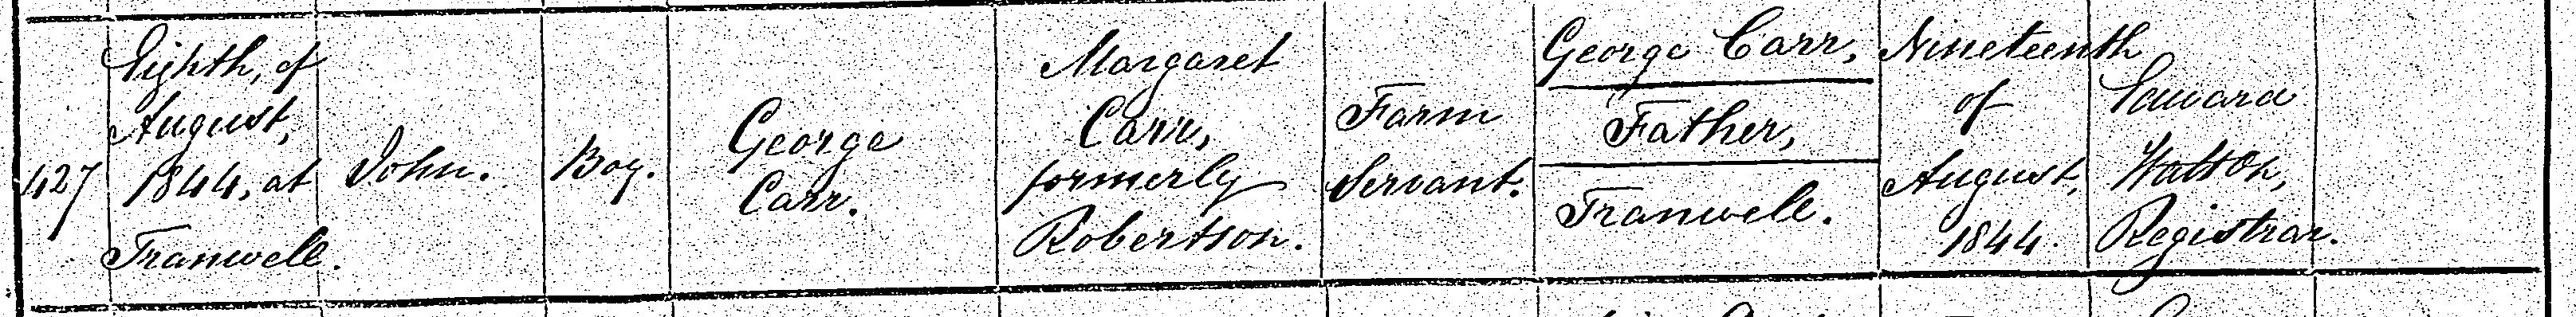 427
Eighth, of
August,
1844, at
Tranwell.
John.
Boy.
George
Carr.
Margaret
Carr,
formerly
Robertson.
Farm
Servant.
George Carr,
Father,
Tranwell.
Nineteenth
of
August,
1844.
Edward
Watson,
Registrar.